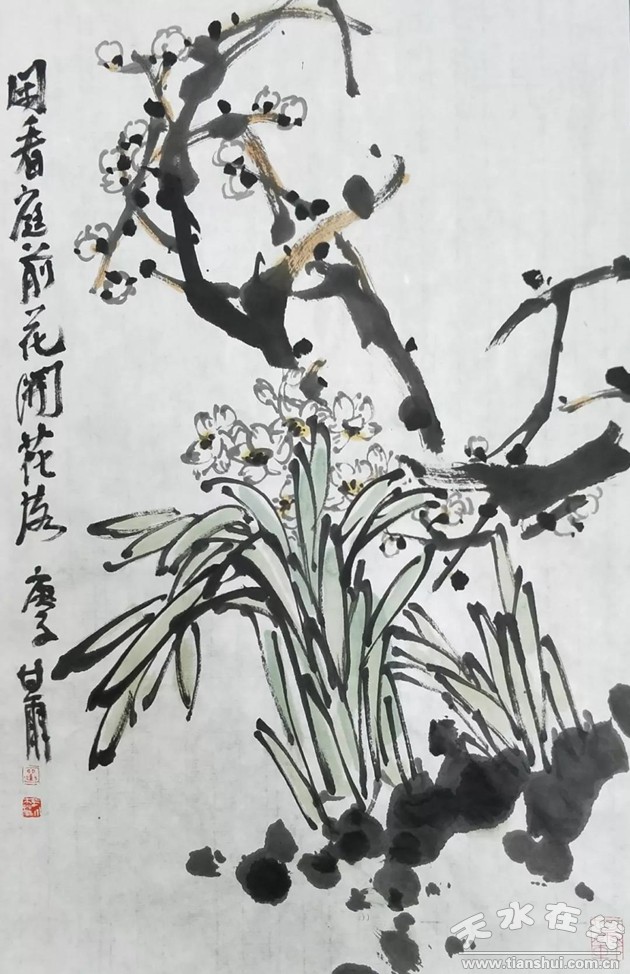 闲看庭前花開花落
庚子 甘雨
天水在线
www.tianshui.com.cn